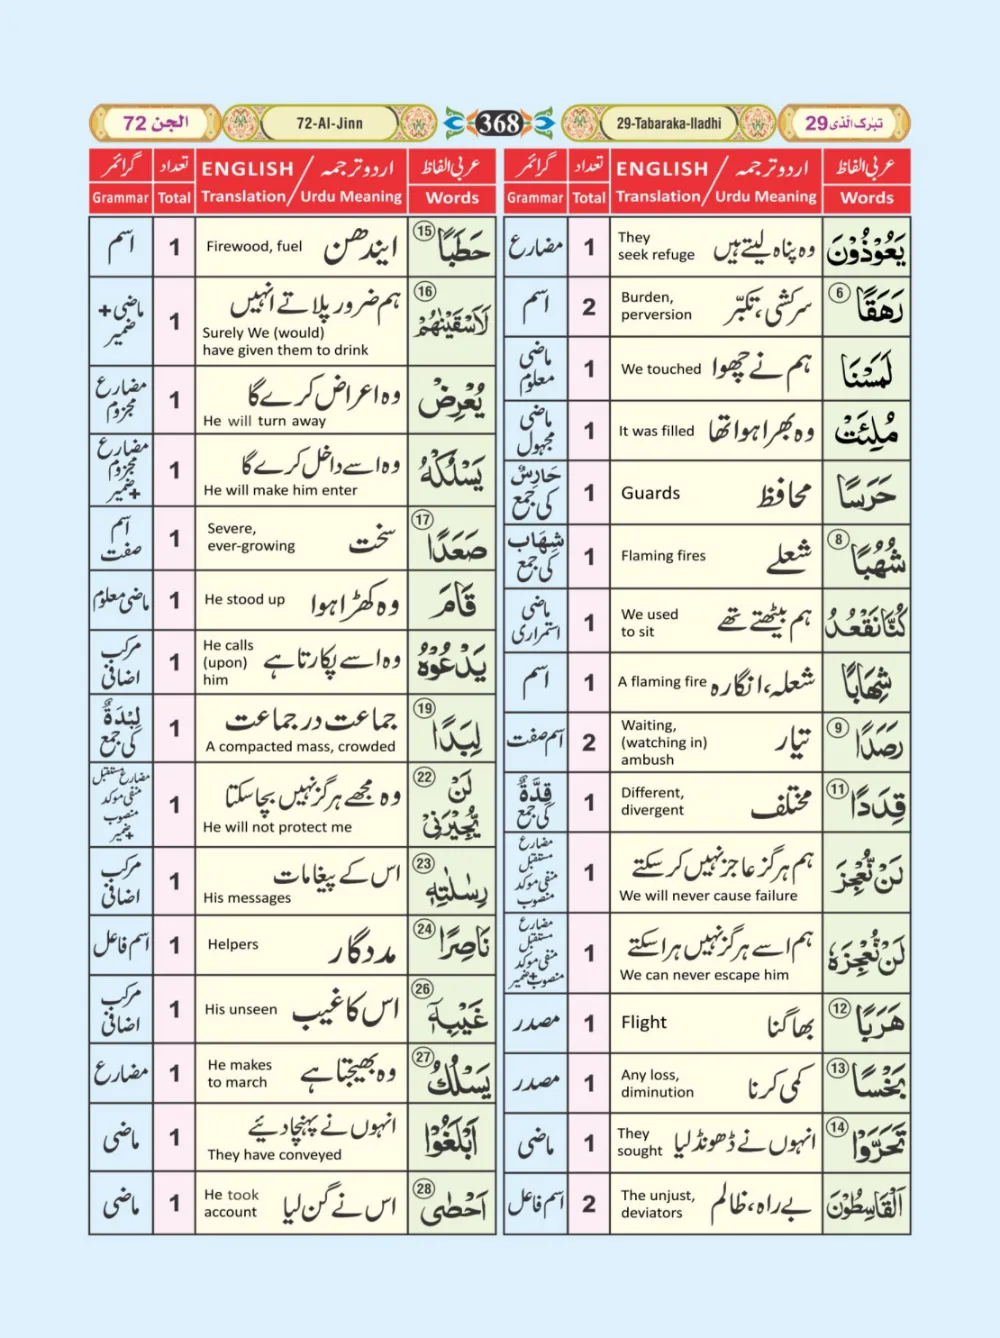 تبٰرک الّذی 29
29-Tabaraka-lladhi
368
72-Al-Jinn
الجن 72
عربی الفاظ اردو ترجمہ / ENGLISH تعداد گرائمر
Words Urdu Meaning / Translation Total Grammar
يَعُوْذُوْنَ وہ پناہ لیتے ہیں They seek refuge 1 مضارع
رَهَقًا ⑥ سرکشی، تکبّر Burden, perversion 2 اسم
لَمَسْنَا ہم نے چھوا We touched 1 ماضی معلوم
مُلِئَتْ وہ بھرا ہوا تھا It was filled 1 ماضی مجہول
حَرَسًا محافظ Guards 1 حَارِسٌ کی جمع
شُهُبًا ⑧ شعلے Flaming fires 1 شِهَاب کی جمع
كُنَّا نَقْعُدُ ہم بیٹھتے تھے We used to sit 1 ماضی استمراری
شِهَابًا شعلہ، انگارہ A flaming fire 1 اسم
رَصَدًا ⑨ تیار Waiting, (watching in) ambush 2 اسم صفت
قِدَدًا ⑪ مختلف Different, divergent 1 قِدَّةٌ کی جمع
لَنْ نُّعْجِزَ ہم ہرگز عاجز نہیں کر سکتے We will never cause failure 1 مضارع مستقبل منفی موکد منصوب
لَنْ نُّعْجِزَهٗ ہم اسے ہرگز نہیں ہرا سکتے We can never escape him 1 مضارع مستقبل منفی موکد منصوب+ضمیر
هَرَبًا ⑫ بھاگنا Flight 1 مصدر
بَخْسًا ⑬ کمی کرنا Any loss, diminution 1 مصدر
تَحَرَّوْا ⑭ انہوں نے ڈھونڈ لیا They sought 1 ماضی
اَلْقَاسِطُوْنَ بے راہ، ظالم The unjust, deviators 2 اسم فاعل
عربی الفاظ اردو ترجمہ / ENGLISH تعداد گرائمر
Words Urdu Meaning / Translation Total Grammar
حَطَبًا ⑮ ایندھن Firewood, fuel 1 اسم
لَاَسْقَيْنٰهُمْ ⑯ ہم ضرور پلاتے انہیں Surely We (would) have given them to drink 1 ماضی+ ضمیر
يُعْرِضْ وہ اعراض کرے گا He will turn away 1 مضارع مجزوم
يَسْلُكْهُ وہ اسے داخل کرے گا He will make him enter 1 مضارع مجزوم +ضمیر
صَعَدًا ⑰ سخت Severe, ever-growing 1 اسم صفت
قَامَ وہ کھڑا ہوا He stood up 1 ماضی معلوم
يَدْعُوْهُ وہ اسے پکارتا ہے He calls (upon) him 1 مرکب اضافی
لِبَدًا ⑲ جماعت در جماعت A compacted mass, crowded 1 لِبْدَةٌ کی جمع
لَنْ يُّجِيْرَنِيْ ㉒ وہ مجھے ہرگز نہیں بچا سکتا He will not protect me 1 مضارع مستقبل منفی موکد منصوب +ضمیر
رِسٰلٰتِهٖ ㉓ اس کے پیغامات His messages 1 مرکب اضافی
نَاصِرًا ㉔ مددگار Helpers 1 اسم فاعل
غَيْبِهٖٓ ㉖ اس کا غیب His unseen 1 مرکب اضافی
يَسْلُكُ ㉗ وہ بھیجتا ہے He makes to march 1 مضارع
اَبْلَغُوْا انہوں نے پہنچا دیئے They have conveyed 1 ماضی
اَحْصٰى ㉘ اس نے گن لیا He took account 1 ماضی